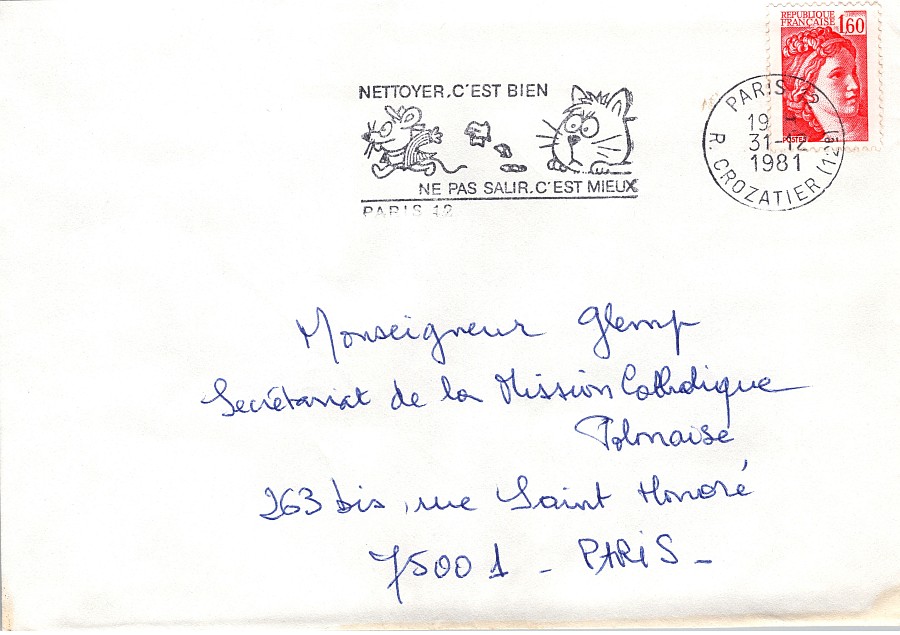 REPUBLIQUE
FRANÇAISE 1,60
POSTES
NETTOYER, C'EST BIEN
NE PAS SALIR. C'EST MIEUX
PARIS 12
PARIS 25
19 -
31-12
1981
R. CROZATIER (12e)
Monseigneur Glemp
Secrétariat de la Mission Catholique
Polonaise
263 bis, rue Saint Honoré
75001 - PARIS -